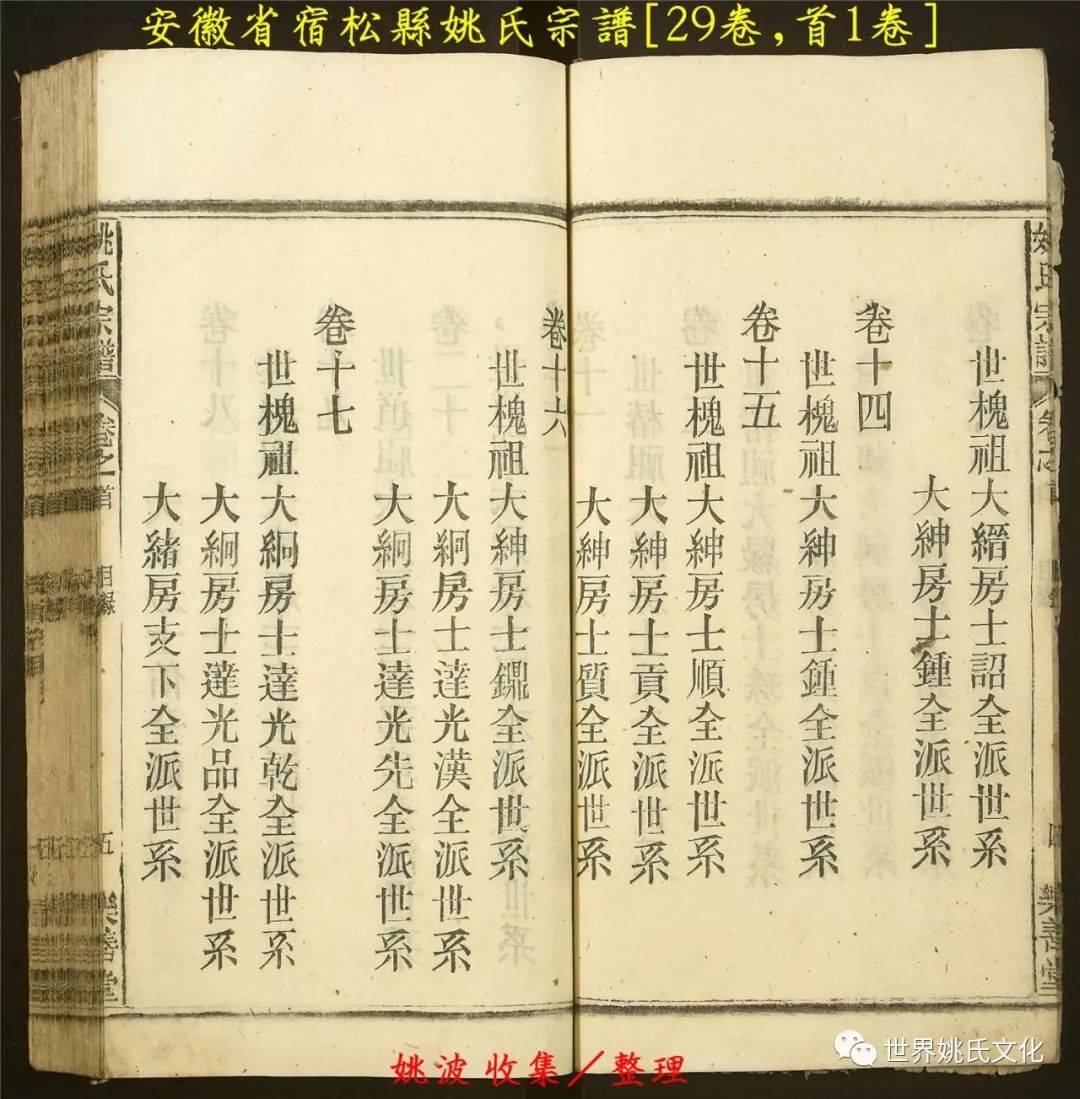 安徽省宿松縣姚氏宗譜[29卷,首1卷]
姚氏宗譜
世槐祖大縉房士詔全派世系
大紳房士鍾全派世系
卷十四
世槐祖大紳房士鍾全派世系
卷十五
世槐祖大紳房士順全派世系
大紳房士貢全派世系
大紳房士質全派世系
卷十六
世槐祖大紳房士鼎全派世系
大絅房士達光漢全派世系
大絅房士達光先全派世系
卷十七
世槐祖大絅房士達光乾全派世系
大絅房士達光品全派世系
大緒房支下全派世系
姚氏宗譜
卷之首
目錄
五
樂善堂
四
樂善堂
姚波收集/整理
世界姚氏文化